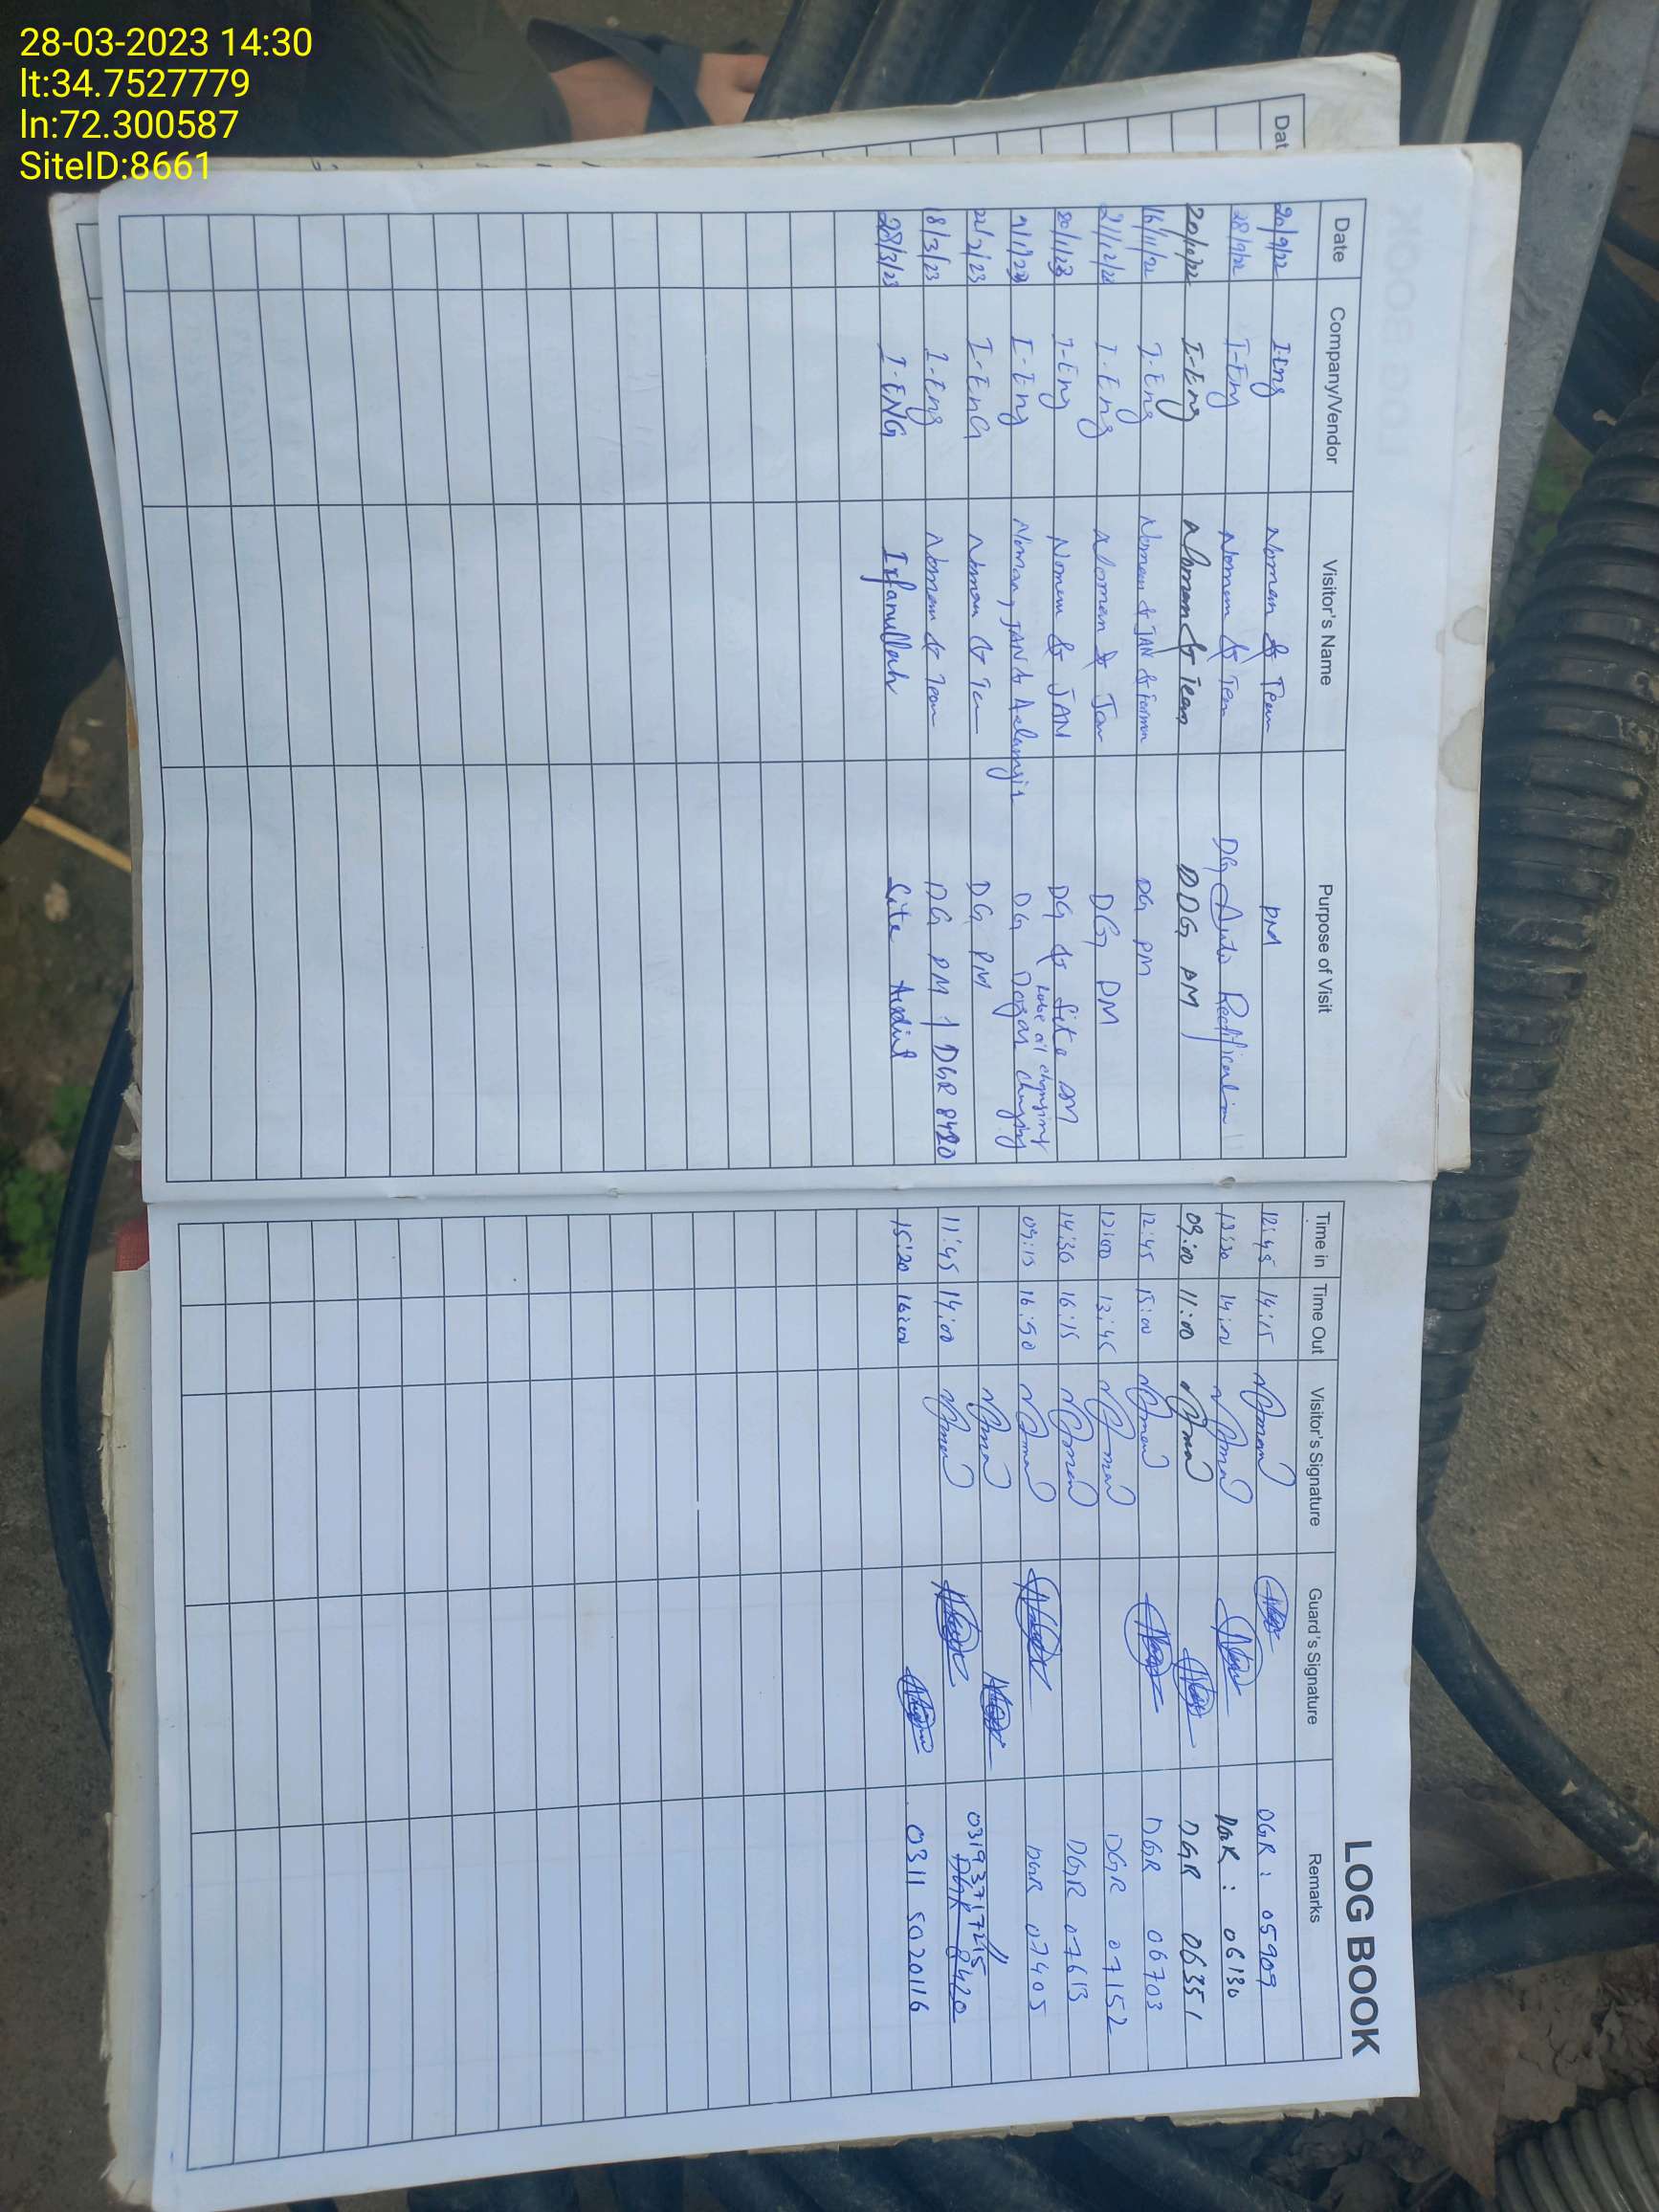 28-03-2023 14:30
lt:34.7527779
ln:72.300587
SiteID:8661
Dat
LOG BOOK
Date Company/Vendor Visitor's Name Purpose of Visit Time in Time Out Visitor's Signature Guard's Signature Remarks
20/9/22 I-Eng Noman & Team PM 12:45 14:15 DGR: 05909
28/9/22 I-Eng Noman & Team DG Auto Rectification 13:30 14:00 DGR: 06130
20/10/22 I-Eng Noman & Team DDG PM 09:00 11:00 DGR 06351
16/11/22 I-Eng Noman & JAN & Farman DG PM 12:45 15:00 DGR 06703
21/12/22 I-Eng Noman & Jan DG PM 12:00 13:45 DGR 07152
I-Eng Noman & JAN DG & Site PM 14:30 16:15 DGR 07613
lube oil changing
I-Eng Noman, JAN & DG changing 09:15 16:50 DGR 07405
22/2/23 I-EnG Noman & DG PM 03193717215
18/3/23 I-Eng Noman & Team DG PM / DGR 8420 11:45 14:00 DGR 8420
28/3/23 I-ENG Irfanullah Site Audit 15:20 16:00 0311 5020116